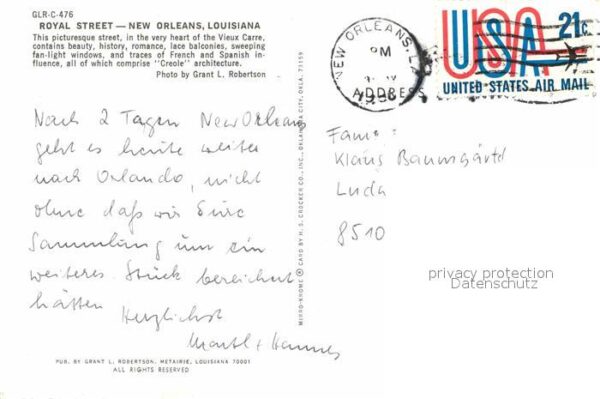 GLR-C-476
ROYAL STREET — NEW ORLEANS, LOUISIANA
This picturesque street, in the very heart of the Vieux Carre,
contains beauty, history, romance, lace balconies, sweeping
fan-light windows, and traces of French and Spanish in-
fluence, all of which comprise "Creole" architecture.
Photo by Grant L. Robertson
Nach 2 Tagen New Orleans
geht es heute weiter
nach Orlando, nicht
ohne daß wir Eure
Sammlung um ein
weiteres Stück bereichert
hätten
Herzlichst
+ Hannes
PUB. BY GRANT L. ROBERTSON, METAIRIE, LOUISIANA 70001
ALL RIGHTS RESERVED
MIRRO-KROME ® CARD BY H. S. CROCKER CO., INC., OKLAHOMA CITY, OKLA. 73159
NEW ORLEANS, LA
PM
ADDRESS
USA 21c
UNITED STATES AIR MAIL
Klaus Baumgärtl
8510
privacy protection
Datenschutz